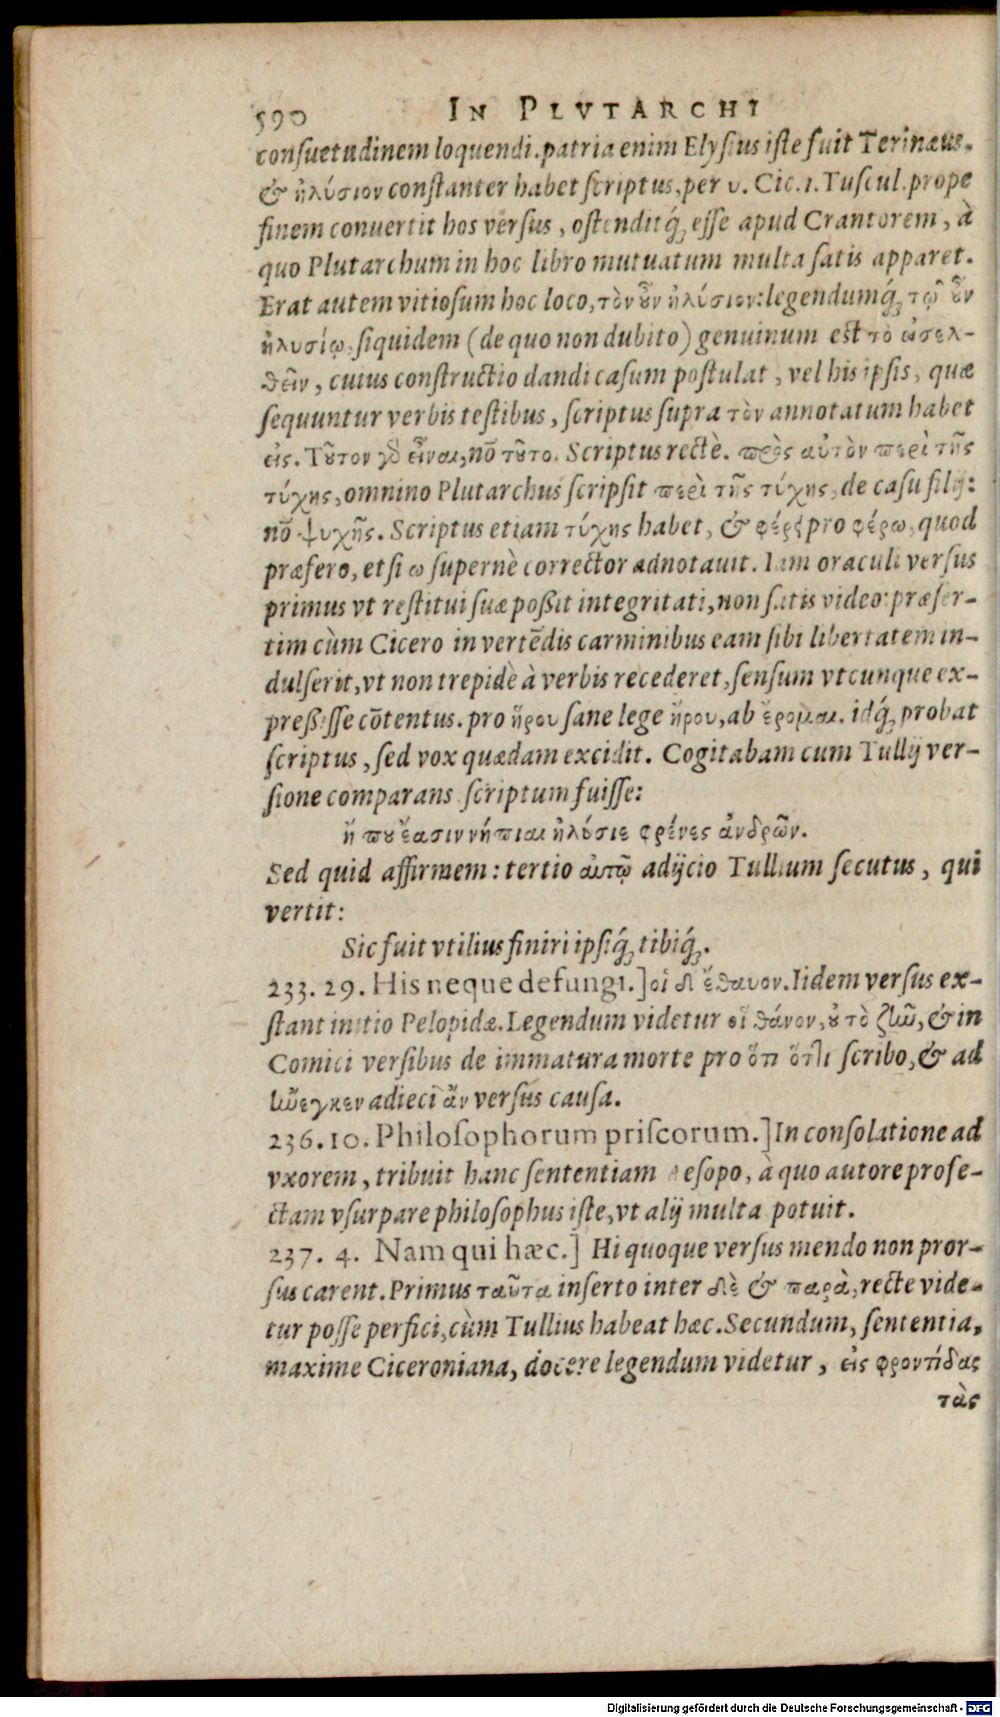 590 IN PLVTARCHI
conſuetudinem loquendi. patria enim Elyſius iſte fuit Terinæus.
& ἠλύσιον conſtanter habet ſcriptus, per υ. Cic. 1. Tuſcul. prope
finem conuertit hos verſus, oſtenditq́; eſſe apud Crantorem, à
quo Plutarchum in hoc libro mutuatum multa ſatis apparet.
Erat autem vitioſum hoc loco, τὸν οὖν ἠλύσιον: legendumq́; τῷ οὖν
ἠλυσίῳ, ſiquidem (de quo non dubito) genuinum eſt τὸ ὠσελ-
θεῖν, cuius conſtructio dandi caſum poſtulat, vel his ipſis, quæ
ſequuntur verbis teſtibus, ſcriptus ſupra τὸν annotatum habet
εἰς. Τοῦτον γὸ εἶναι, nō τοῦτο. Scriptus rectè. πρὸς αὐτὸν περὶ τῆς
τύχης, omnino Plutarchus ſcripſit περὶ τῆς τύχης, de caſu filij:
nō ψυχῆς. Scriptus etiam τύχης habet, & φέρε pro φέρω, quod
præfero, etſi ω ſupernè corrector adnotauit. Iam oraculi verſus
primus vt reſtitui ſuæ poßit integritati, non ſatis video: præſer-
tim cùm Cicero in vertēdis carminibus eam ſibi libertatem in-
dulſerit, vt non trepidè à verbis recederet, ſenſum vtcunque ex-
preßiſſe cōtentus. pro ἥρου ſane lege ἤρου, ab ἔρομαι. idq́; probat
ſcriptus, ſed vox quædam excidit. Cogitabam cum Tullij ver-
ſione comparans ſcriptum fuiſſe:
ἤ που ἔασιν νήπιαι ἠλύσιε φρένες ἀνδρῶν.
Sed quid affirmem: tertio αὐτῷ adijcio Tullium ſecutus, qui
vertit:
Sic fuit vtilius finiri ipſiq́; tibiq́;.
233. 29. His neque defungi.] οἳ δ' ἔθανον. Iidem verſus ex-
ſtant initio Pelopidæ. Legendum videtur οἳ θάνον, οὐ τὸ ζῆν, & in
Comici verſibus de immatura morte pro ὅτι ὅτε scribo, & ad
ἤνεγκεν adieci ἂν verſus cauſa.
236. 10. Philoſophorum priſcorum.] In conſolatione ad
vxorem, tribuit hanc ſententiam Aeſopo, à quo autore profe-
ctam vſurpare philoſophus iſte, vt alij multa potuit.
237. 4. Nam qui hæc.] Hi quoque verſus mendo non pror-
ſus carent. Primus ταῦτα inſerto inter δὲ & παρὰ, recte vide-
tur poſſe perfici, cùm Tullius habeat hæc. Secundum, ſententia,
maxime Ciceroniana, docere legendum videtur, εἰς φροντίδας
τὰς
Digitalisierung gefördert durch die Deutsche Forschungsgemeinschaft - DFG